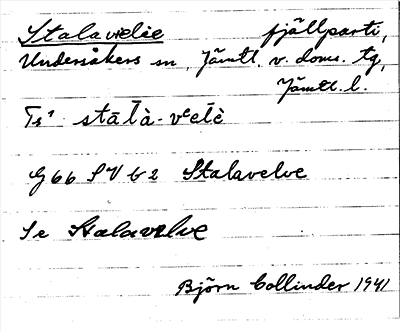 Stalavielie fjällparti,
Undersåkers sn, Jämtl. v. doms. tg,
Jämtl. l.
Ts¹ stālà-vᵉelè
G 66 SV b 2 Stalavelve
Se Stalavelve
Björn Collinder 1941